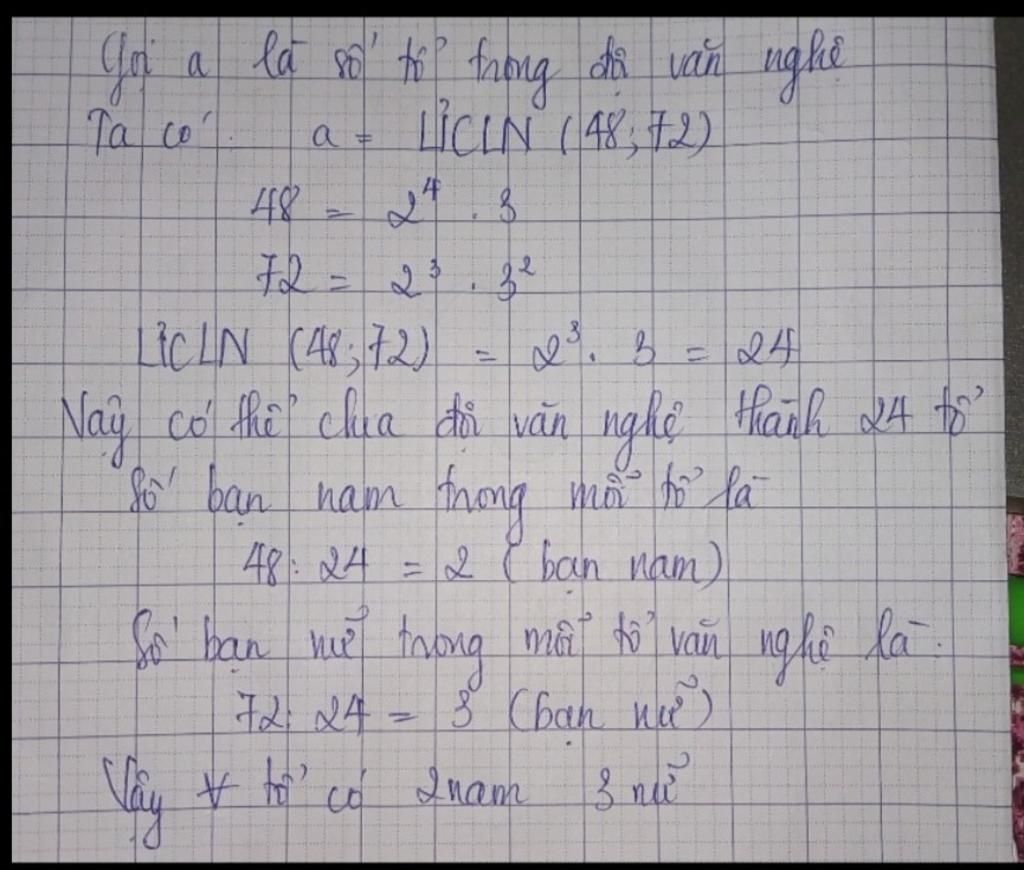 Gọi a là số tổ trong đội văn nghệ
Ta có: a = ƯCLN (48; 72)
48 = 2⁴ . 3
72 = 2³ . 3²
ƯCLN (48; 72) = 2³ . 3 = 24
Vậy có thể chia đội văn nghệ thành 24 tổ
Số bạn nam trong mỗi tổ là
48 : 24 = 2 (bạn nam)
Số bạn nữ trong mỗi tổ văn nghệ là :
72 : 24 = 3 (bạn nữ)
Vậy ∀ tổ có 2 nam 3 nữ